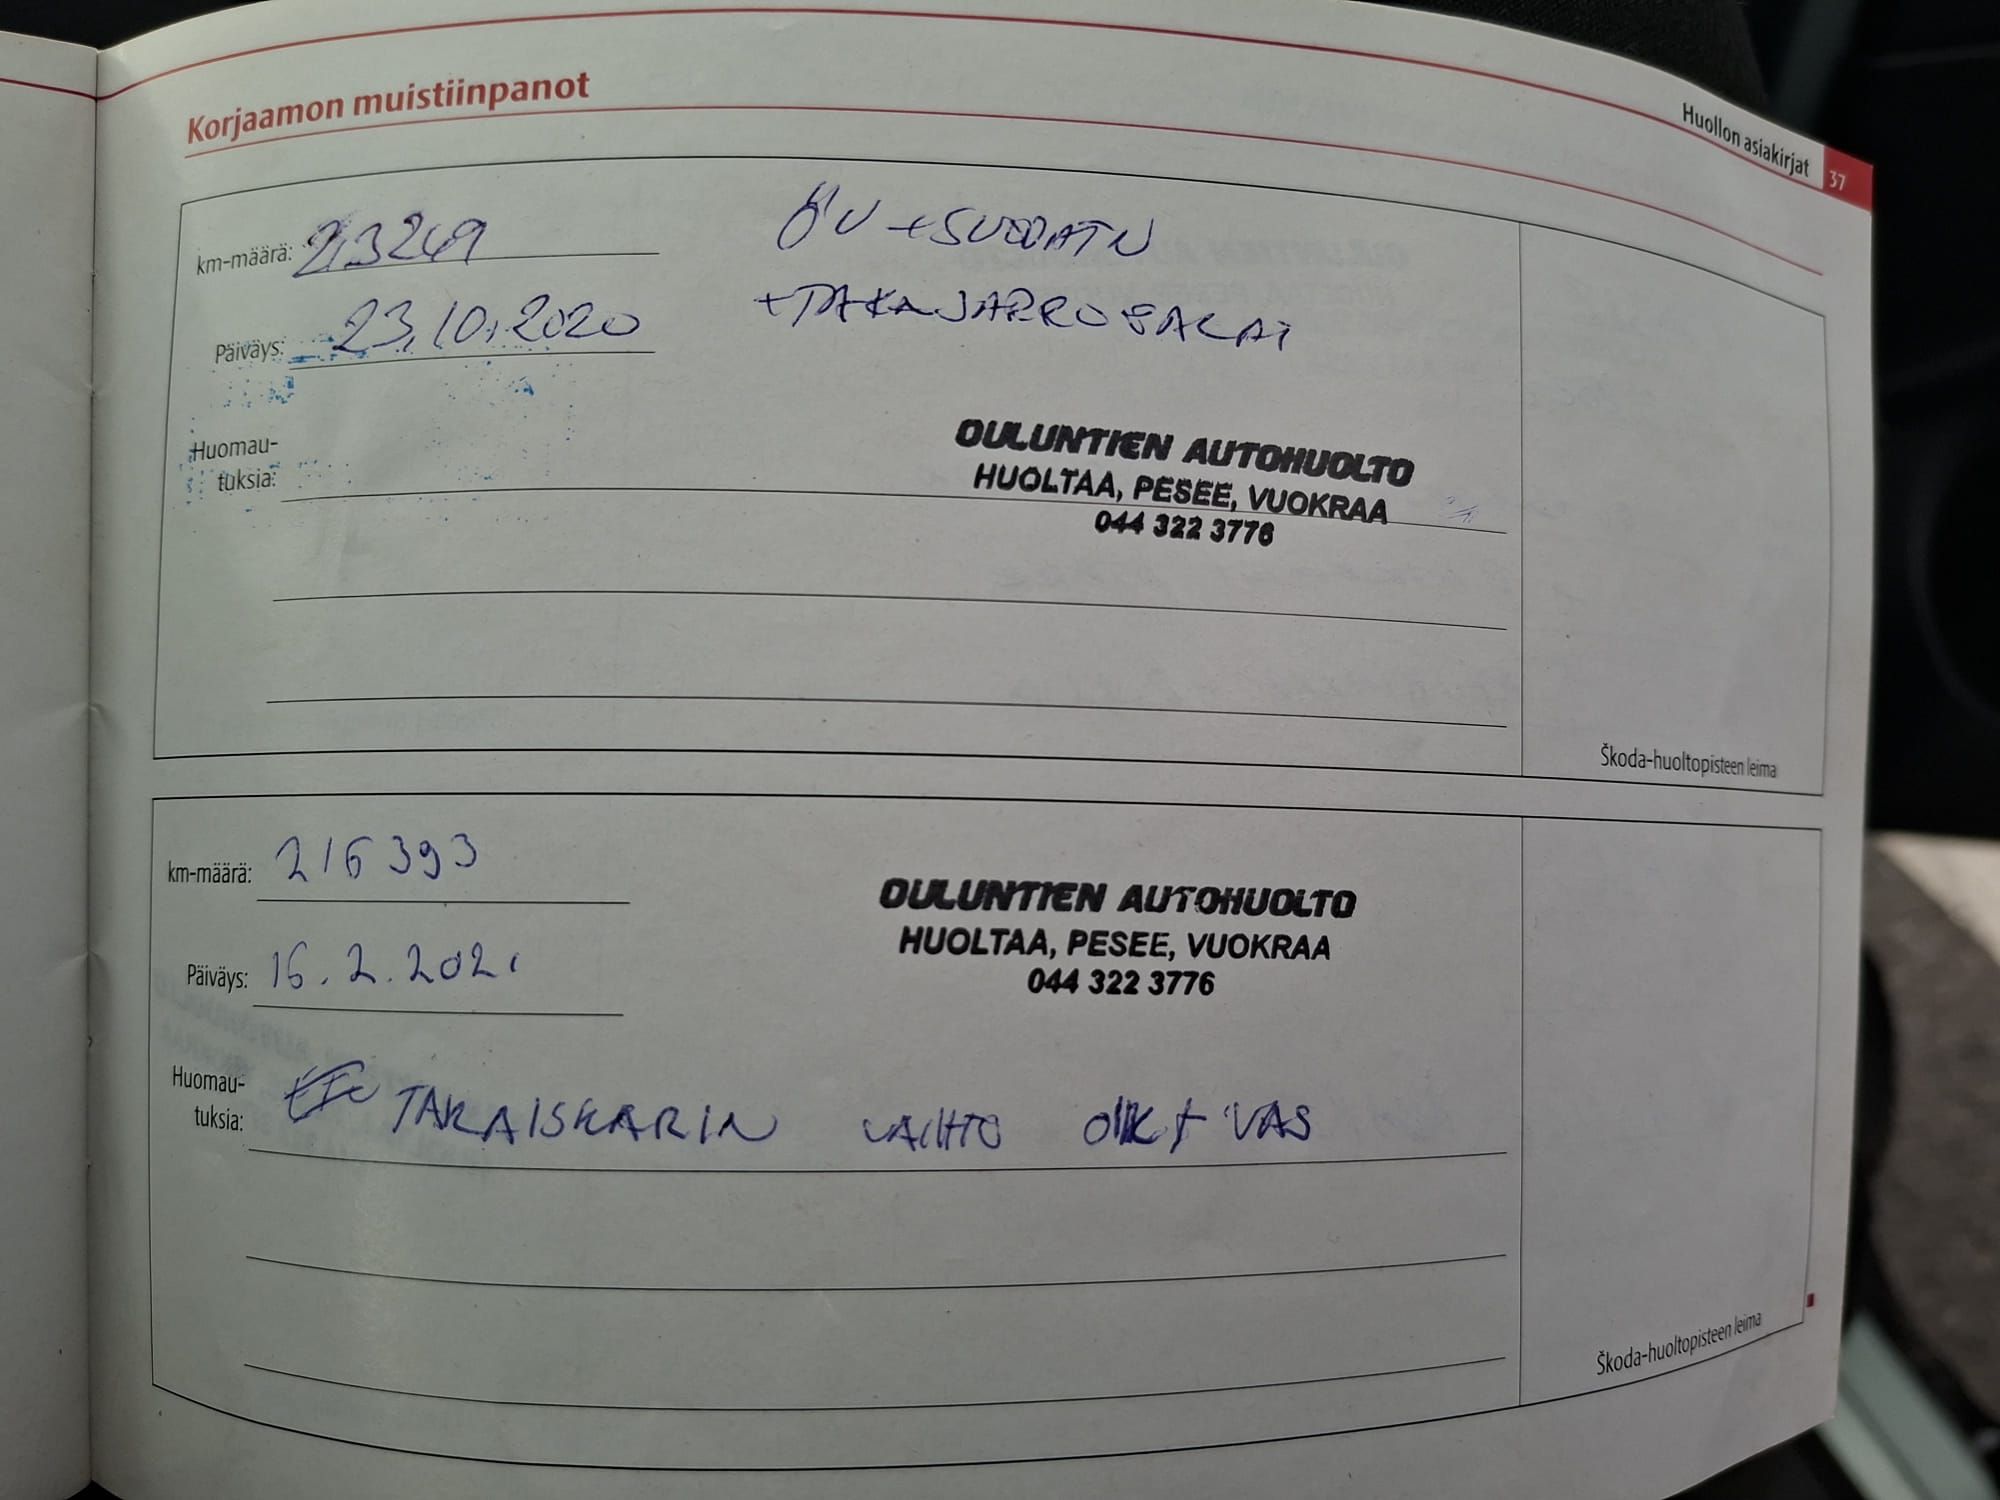 Korjaamon muistiinpanot
Huollon asiakirjat 37
km-määrä: 213249
ÖV + SUODATIN
Päiväys: 23.10.2020
+ TAKAJARRUPALAT
Huomau-
tuksia:
OULUNTIEN AUTOHUOLTO
HUOLTAA, PESEE, VUOKRAA
044 322 3776
Škoda-huoltopisteen leima
km-määrä: 216393
OULUNTIEN AUTOHUOLTO
HUOLTAA, PESEE, VUOKRAA
044 322 3776
Päiväys: 16.2.2021
Huomau-
tuksia: TAKAISKARIN VAIHTO OIK + VAS
Škoda-huoltopisteen leima